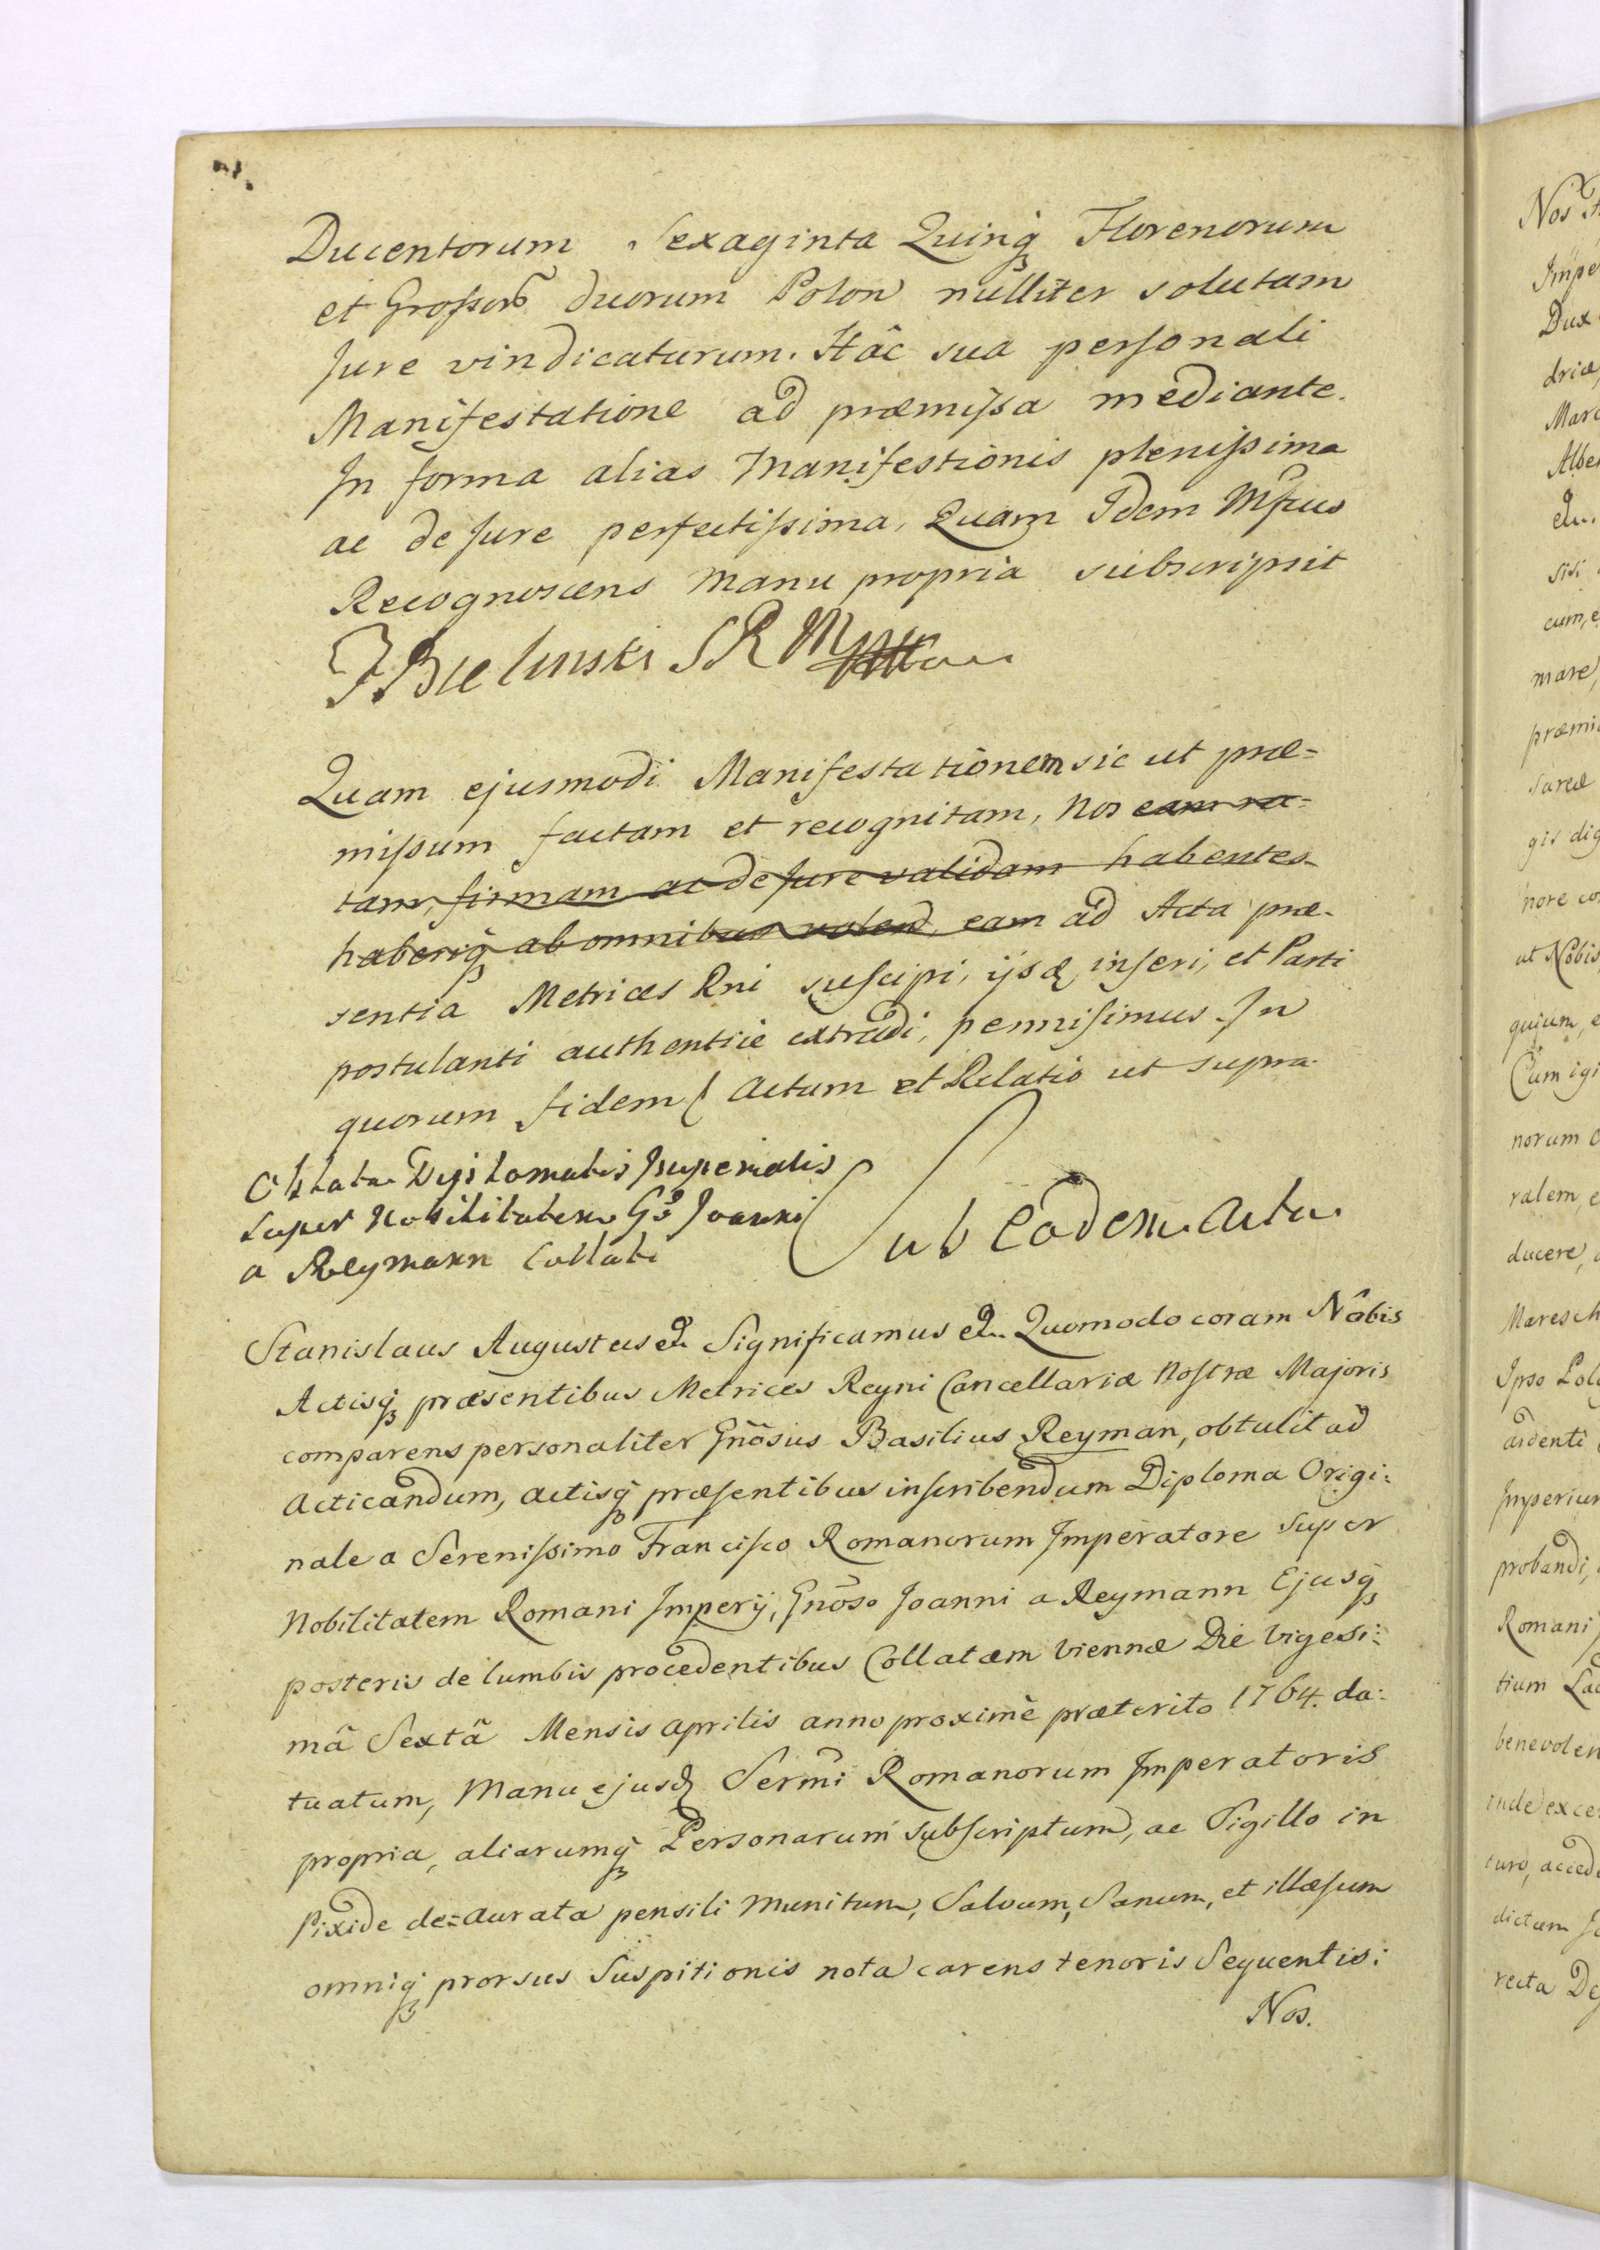 Ducentorum Sexaginta Quinqꝫ Florenorum
et Grossorũ duorum Polon nulliter solutam
Jure vindicaturum. Hâc sua personali
Manifestatione ad præmissa mediante.
In forma alias Manifestionis plenissima
ac de Jure perfectissima, Quam Idem Mfcus
Recognoscens Manu propria subscripsit
F Bielinski SRM
Quam ejusmodi Manifestationem sic ut præ=
missum factam et recognitam, Nos eam ra=
tam, firmam ac de Jure validam habentes
haberiqꝫ ab omnibus volend eam ad Acta præ-
sentia Metrices Rni suscipi, ijsdꝫ inseri, et Parti
postulanti authentice extradi, permisimus. In
quorum fidem Actum et Relatio ut supra.
Oblata Dyplomatis Imperialis
super Nobilitatem Gs̃o Joanni
a Reymann Collati
Sub Eadem Acta
Stanislaus Augustus &c Significamus &c. Quomodo coram Nobis
Actisqꝫ præsentibus Metrices Regni Cancellariæ Nostræ Majoris
comparens personaliter Gñosus Basilius Reyman, obtulit ad
Acticandum, actisqꝫ præsentibus inscribendum Diploma Origi=
nale a Serenissimo Francisco Romanorum Imperatore super
Nobilitatem Romani Imperij, Gñoso Joanni a Reymann Ejusqꝫ
posteris de lumbis procedentibus Collatam Viennæ Die Vigesi=
mâ Sextâ Mensis Aprilis anno proximè præterito 1764. da=
tuatum, Manu ejusdꝫ Sermi Romanorum Imperatoris
propria, aliarumqꝫ Personarum subscriptum, ac Sigillo in
Pixide de=aurata pensili munitum, Salvum, Sanum, et illæsum
omniqꝫ prorsus Suspitionis nota carens tenoris Sequentis:
Nos.